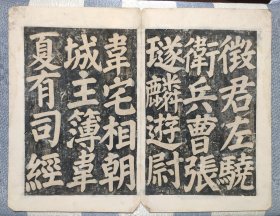 徵君左驍
衛兵曹張
璲麟遊尉
韋宅相朝
城主簿韋
夏有司經